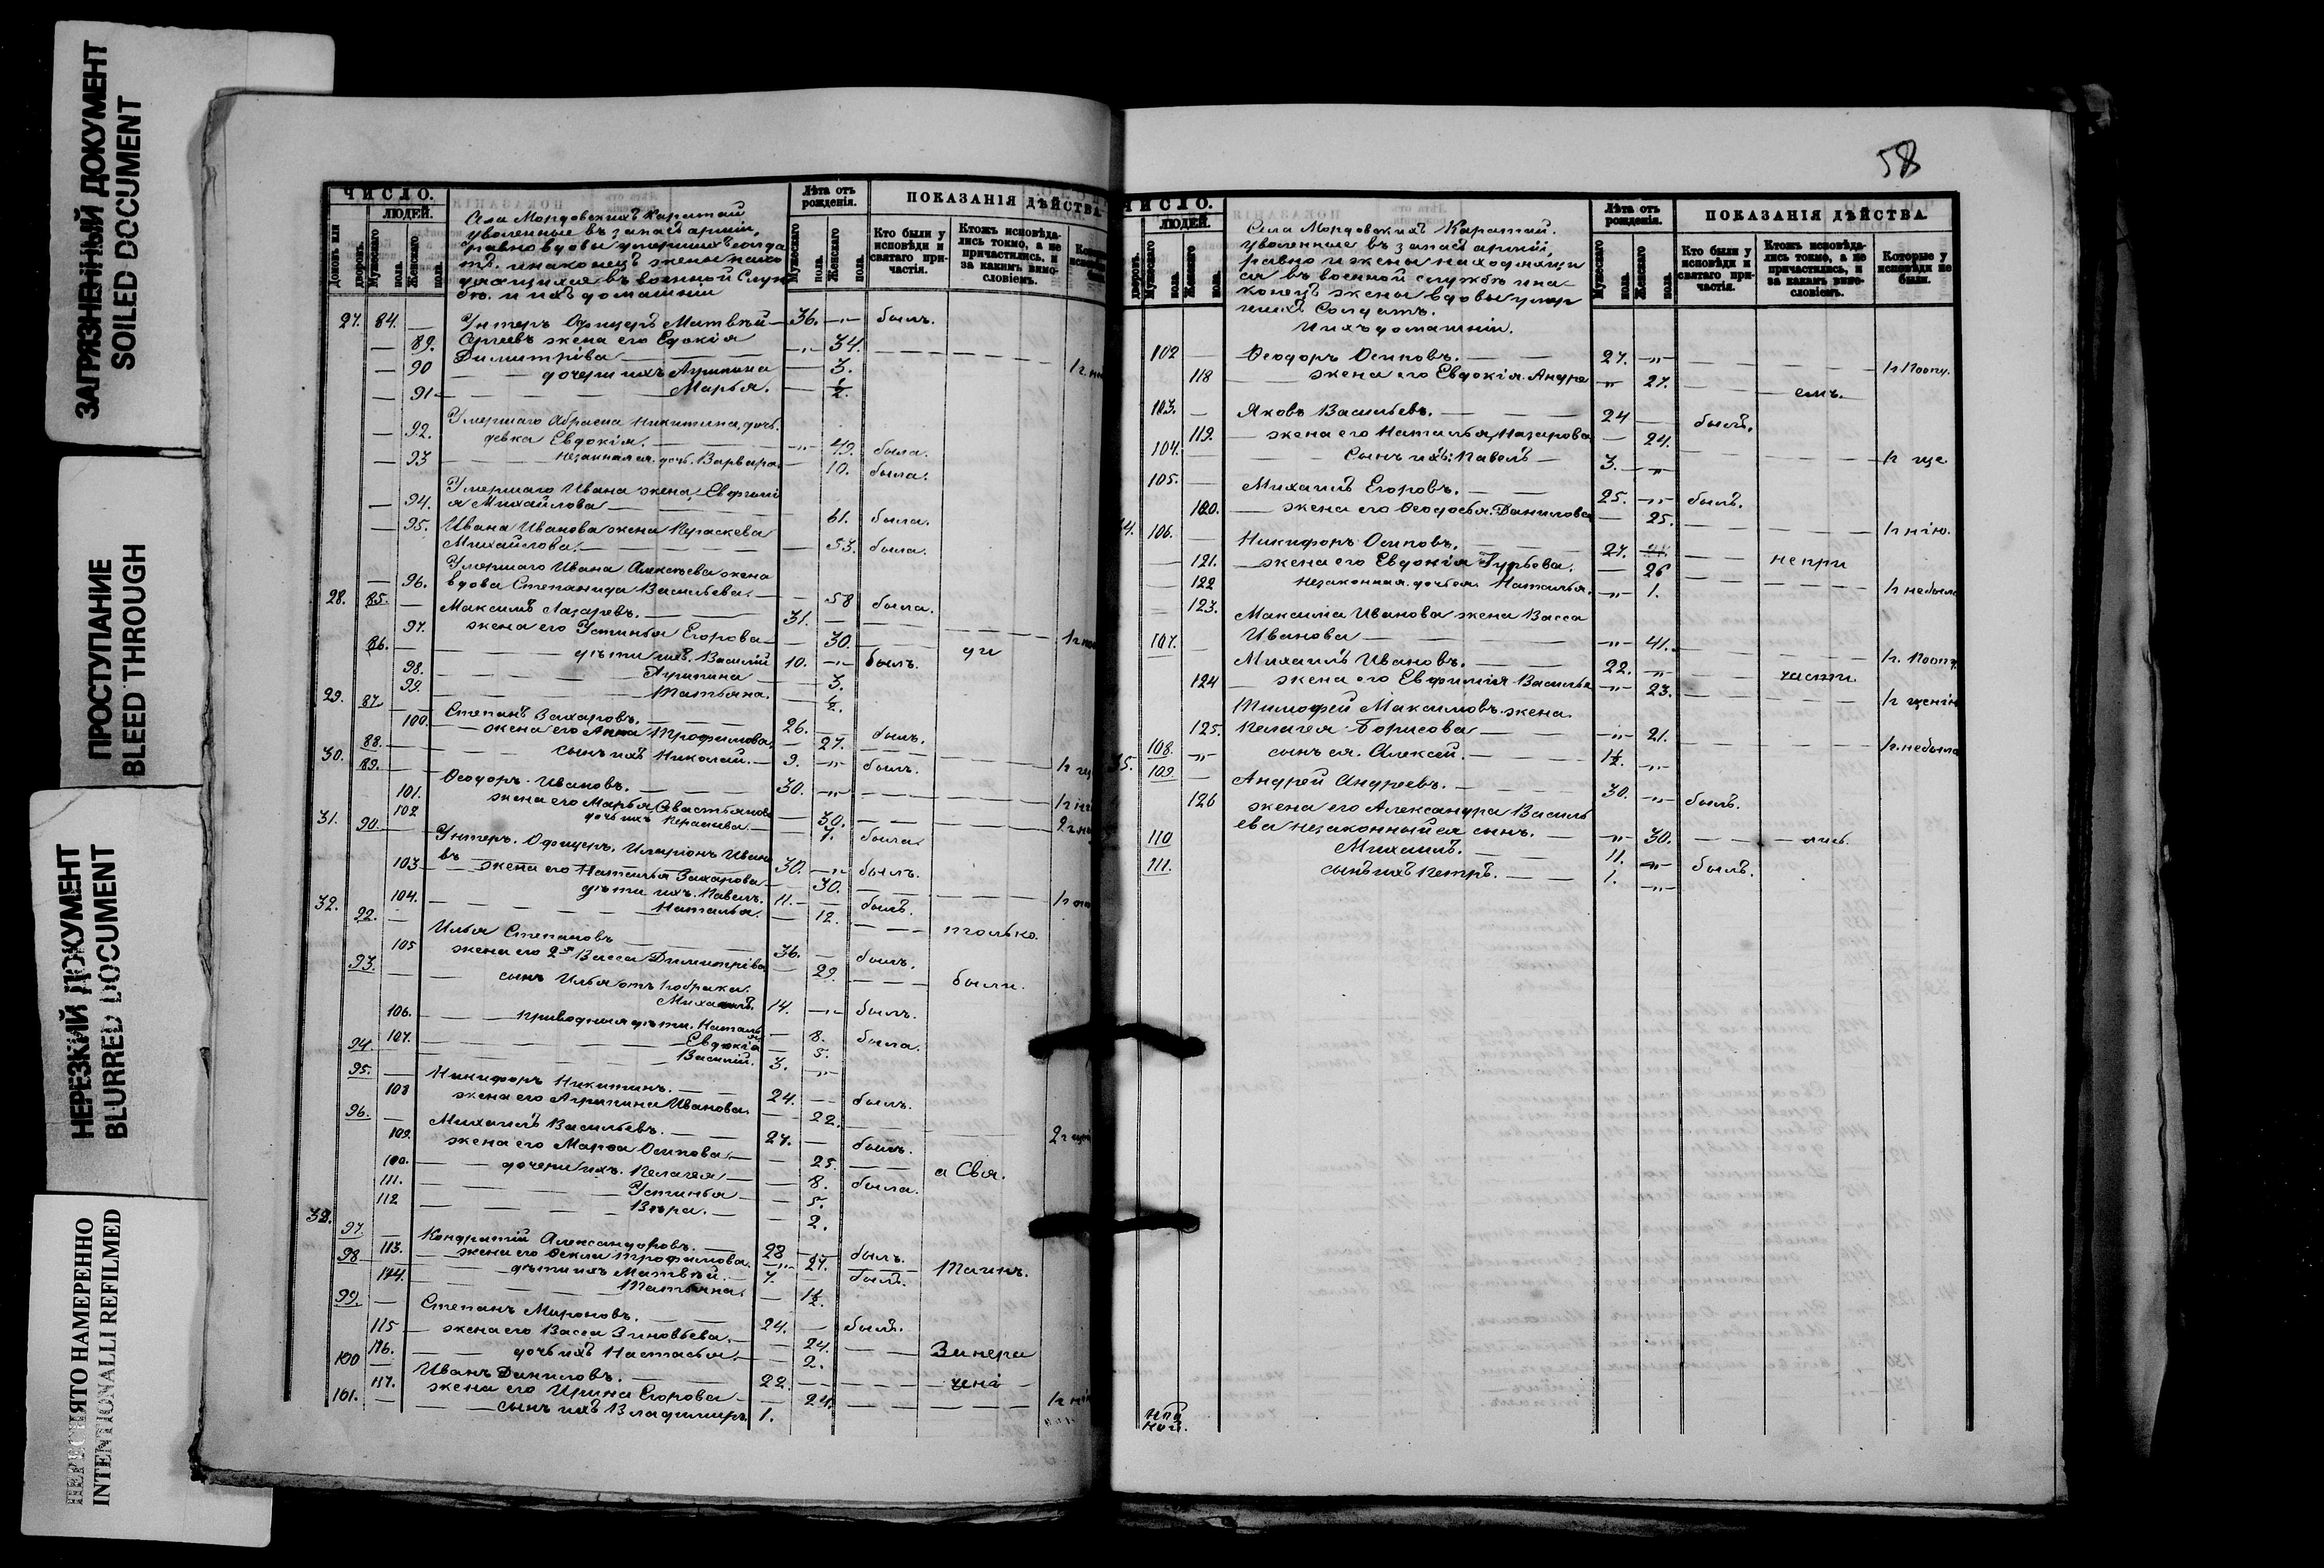 ЗАГРЯЗНЕННЫЙ ДОКУМЕНТ
SOILED DOCUMENT
ПРОСТУПАНИЕ
BLEED THROUGH
НЕРЕЗКИЙ ДОКУМЕНТ
BLURRED DOCUMENT
ПЕРЕСНЯТО НАМЕРЕННО
INTENTIONALLI REFILMED
ЧИСЛО.
ЛЮДЕЙ.
Домовъ или дворовъ.
Мужескаго пола.
Женскаго пола.
Села Мордовскихъ Каратай
уволенные въ запасъ арміи,
равно вдовы умершихъ солда
тъ. инаконецъ жены нахо
дящихся въ военной Служ
бѣ. и ихъ домашніи
Лѣта отъ рожденія.
Мужескаго пола.
Женскаго пола.
ПОКАЗАНІЯ ДѢЙСТВА
Кто были у исповѣди и святаго причастія.
Ктожъ исповѣдались токмо, а не причастились, и за какимъ винословіемъ.
27. 84. — Унтеръ Офицеръ Матвѣй — 36. —"— былъ.
— 89. Сергѣевъ жена его Евдокія
Димитріва — —"— 34.
— 90 дочери ихъ Агрипина — 3.
— 91 — Марья. — 1/2.
Умершаго Абрама Никитина, дочь
— 92. девка Евдокія. —"— 49. была.
— 93 незаконная дочь Варвара. — 10. была.
Умершаго Ивана жена Евфимі
— 94. я Михайлова — 61. была.
— 95. Ивана Иванова жена Параскева
Михайлова. — 53. была.
Умершаго Ивана Алексѣева жена
— 96. вдова Степанида Васильева. — 58 была.
28. 85. — Максимъ Лазаревъ. — 31. —
97. жена его Устинья Егорова — 30. —
86. — дѣти ихъ. Василій 10. —"— былъ.
98. Агрипина — 3.
99. Татьяна. — 1/2.
29. 87. Степанъ Захаровъ. — 26. — былъ.
100. — жена его Анна Трофимова. — 27.
88. — сынъ ихъ Николай. — 9. —"— былъ.
30. 89. — Ѳеодоръ Ивановъ. — 30. —"—
101. жена его Марья Савастьянова — 30.
102 дочь ихъ — 7. была.
31. 90. — Унтеръ. Офицеръ. Иларіонъ Ивано
въ — 30. —"— былъ.
103 — жена его Наталья Захарова — 30.
дѣти ихъ. Павелъ. 11. — былъ.
104. — Наталья. — 12.
только.
32. 92. — Илья Степановъ — 36. — былъ.
105 жена его 2я Васса Димитріва — 29.
были.
93. — сынъ Ильи отъ 1го брака.
Михаилъ. 14. —"— былъ.
106. — приводныя дѣти. Наталья — 8. была.
107. — Евдокія — 5.
94. — Василій. 3. —"—
95. — Никифоръ Никитинъ. — 24. — былъ.
108 жена его Агрипина Иванова. — 22.
96. — Михаилъ Васильевъ. — 27. — былъ.
109. жена его Марѳа Осипова — 25.
а Свя.
110. — дочери ихъ. Пелагея — 8. была.
111. — Устинья — 5.
112 — Вѣра. — 2.
97. — Кондратій Александровъ. — 28 — былъ.
113. — жена его Ѳекла Трофимова. —"— 27.
98 — дѣти ихъ Матвѣй. — 7. — былъ.
Таинъ.
114. — Татьяна. — 1 1/2.
99. — Степанъ Мироновъ. — 24. — былъ.
115 — жена его Васса Зиновьева. — 24.
116. — дочь ихъ Настасья. — 2.
100 — Иванъ Даниловъ. — 22.
117. жена его Ирина Егорова — 24.
101. — сынъ ихъ Владиміръ 1.
58
ЧИСЛО.
ЛЮДЕЙ.
дворовъ.
Мужескаго пола.
Женскаго пола.
Села Мордовскихъ Каратай.
уволенные въ запасъ арміи,
равно и жены находящи
ся въ военной службѣ ина
конецъ жены вдовы умер
шихъ Солдатъ.
И ихъ домашніи.
Лѣта отъ рожденія.
Мужескаго пола.
Женскаго пола.
ПОКАЗАНІЯ ДѢЙСТВА
Кто были у исповѣди и святаго причастія.
Ктожъ исповѣдались токмо, а не причастились, и за какимъ винословіемъ.
Которые у исповѣди не были.
102 — Ѳеодоръ Осиповъ. — 27. —"—
118 — жена его Евдокія Андре —"— 27.
емъ.
103. — Яковъ Васильевъ. — 24 — былъ.
119. — жена его Наталья Назарова — 24.
104. — Сынъ ихъ: Павелъ — 3. —"—
105. — Михаилъ Егоровъ. — 25. —"— былъ.
120. — жена его Ѳеодосья Данилова — 25.
106. — Никифоръ Осиповъ. — 27.
непри
— 121. — жена его Евдокія Гурьева. — 26
— 122 незаконная. дочь ея. Наталья. —"— 1.
небыли
— 123. Максима Иванова жена Васса
Иванова — —"— 41.
107. — Михаилъ Ивановъ. — 22. —"—
части.
124 — жена его Евфимія Василье —"— 23.
Тимофей Максимовъ жена.
125. Пелагея Борисова — —"— 21.
небыла
108. —"— сынъ ея. Алексѣй. — 1 1/2. —"—
109. — Андрей Андреевъ. — 30. —"— былъ.
126 жена его Александра Василь
ева незаконный ея сынъ. — —"— 30.
лись.
110 Михаилъ. — 11. —"— былъ.
111. сынъ ихъ Петръ. — 1. —"—